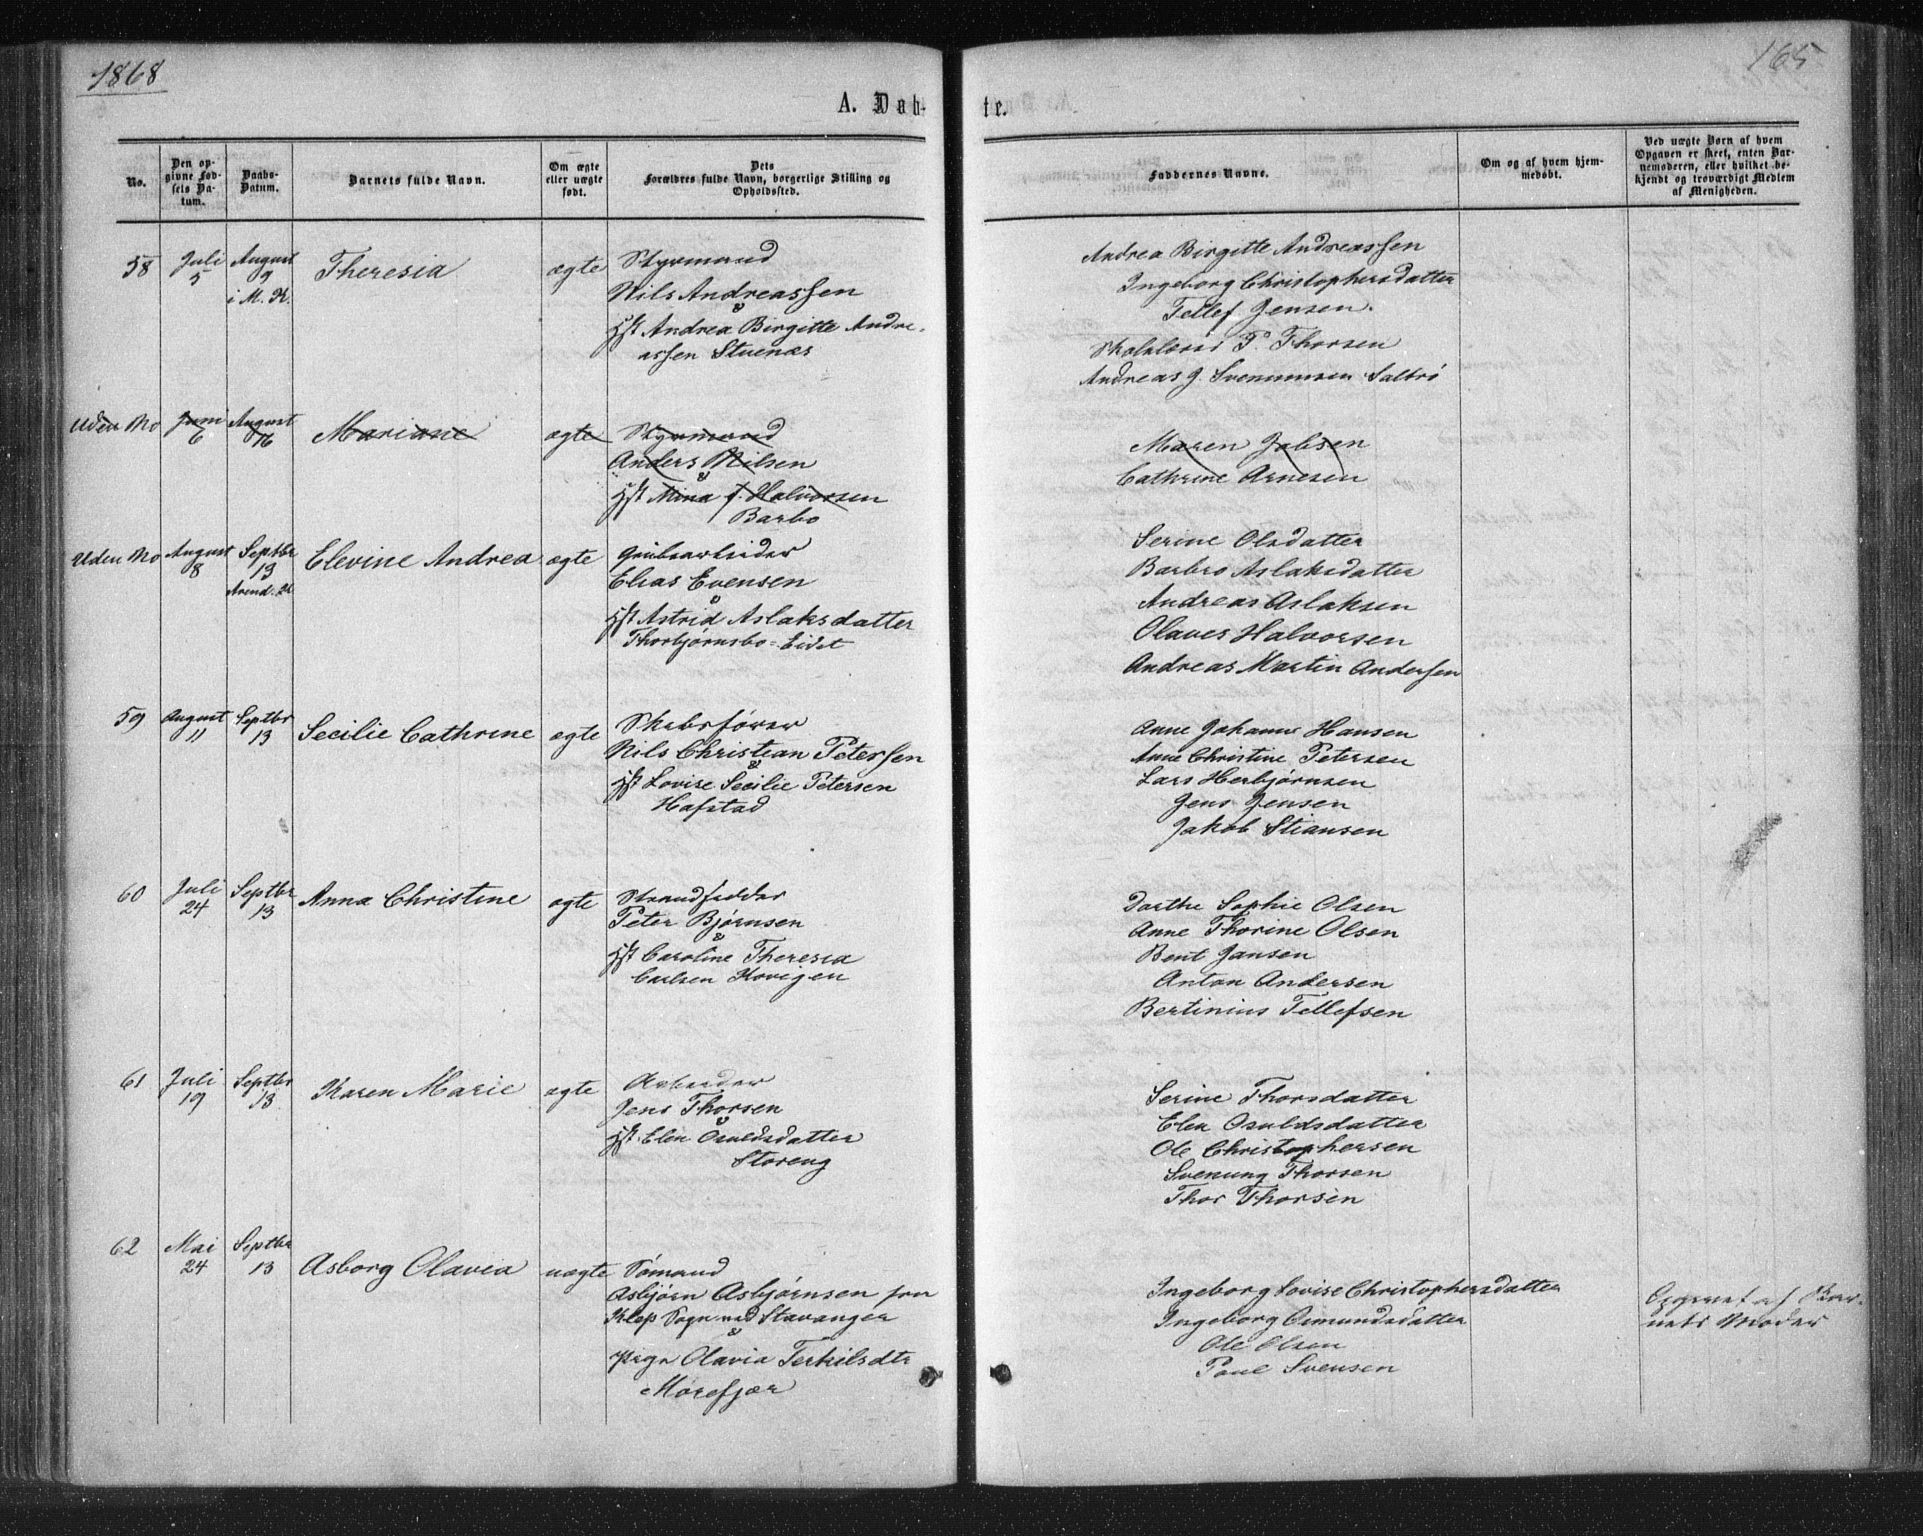 1868
165
A. Døb-
te.
No.
Den op-
givne Fød-
sels Da-
tum.
Daabs-
Datum.
Barnets fulde Navn.
Om ægte
eller uægte
født.
Dets
Forældres fulde Navn, borgerlige Stilling og
Opholdssted.
Faddernes Navne.
Om og af hvem hjem-
medøbt.
Ved uægte Børn af hvem
Opgaven er skeet, enten Bar-
nemoderen, eller hvilket be-
kjendt og troværdigt Medlem
af Menigheden.
58
Juli
5
August
9
i M. K.
Theresia
ægte
Styrmand
Nils Andreassen
&
Hst Andrea Birgitte Andre-
assen Stuenæs
Andrea Birgitte Andreassen
Ingeborg Christophersdatter
Tellef Jensen.
P. Thorsen
Andreas J. Svenumsen Saltrø
Uden No
Juni
6
August
16
Mariane
ægte
Styrmand
Anders Nilsen
&
Hst Mina J. Halvorsen
Barbo
Maren Jabsen
Cathrine Arnesen
Uden No
August
8
Septbr
13
Arend. K
Elevine Andrea
ægte
Grubearbeider
Elias Evensen
&
Hst Astrid Aslaksdatter
Thorbjørnsbo-Eidet
Serine Olsdatter
Barbro Aslaksdatter
Andreas Aslaksen
Olaves Halvorsen
Andreas Martin Andersen
59
August
11
Septbr
13
Secilie Cathrine
ægte
Skibsfører
Nils Christian Petersen
&
Hst Lovise Secilie Petersen
Hafstad
Anne Johanne Hansen
Anne Christine Petersen
Lars Herbjørnsen
Jens Jensen
Jakob Stiansen
60
Juli
24
Septbr
13
Anna Christine
ægte
Strandsidder
Peter Bjørnsen
&
Hst Caroline Theresia
Carlsen Kovigen
Dorthe Sophie Olsen
Anne Thorine Olsen
Bent Jansen
Anton Andersen
Bertinius Tellefsen
61
Juli
19
Septbr
13
Karen Marie
ægte
Arbeider
Jens Thorsen
&
Hst Elen Osuldsdatter
Storeng
Serine Thorsdatter
Elen Osuldsdatter
Ole Christophersen
Svenung Thorsen
Thor Thorsen
62
Mai
24
Septbr
13
Asborg Olavia
uægte
Sømand
Asbjørn Asbjørnsen fra
Klep Sogn ved Stavanger
&
Pige Olavia Terkilsdtr
Mørefjær
Ingeborg Lovise Christophersdatter
Ingeborg Osmundsdatter
Ole Olsen
Paul Svensen
Opgivet af Bar-
nets Moder